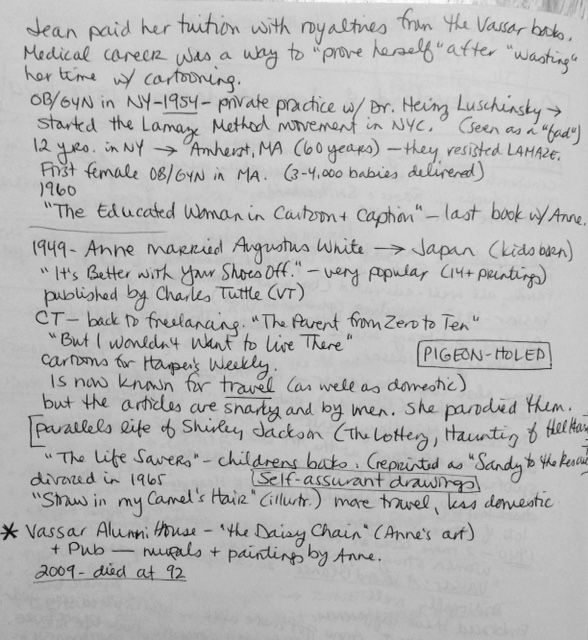 Jean paid her tuition with royalties from the Vassar books.
Medical career was a way to "prove herself" after "wasting"
her time w/ cartooning.
OB/GYN in NY-1954- private practice w/ Dr. Heinz Luschinsky →
started the Lamaze Method movement in NYC. (seen as a "fad")
12 yrs. in NY → Amherst, MA (60 years) - they resisted LAMAZE.
First female OB/GYN in MA. (3-4,000 babies delivered)
1960
"The Educated Woman in Cartoon + Caption" - last book w/ Anne.
1949- Anne married Augustus White → Japan (kids born)
"It's Better with Your Shoes Off." - very popular (14+ printings)
published by Charles Tuttle (VT)
CT - back to freelancing. "The Parent from Zero to Ten"
"But I Wouldn't Want to Live There"
PIGEON-HOLED
cartoons for Harper's Weekly.
Is now known for travel (as well as domestic)
but the articles are snarky and by men. She parodied them.
[parallels life of Shirley Jackson (The Lottery, Haunting of Hill
"The Life Savers" - childrens books. (reprinted as "Sandy to the Rescue
divorced in 1965 [Self-assurant drawings]
"Straw in my Camel's Hair" (illustr.) more travel, less domestic
* Vassar Alumni House - "the Daisy Chain" (Anne's art)
+ Pub - murals + paintings by Anne.
2009 - died at 92